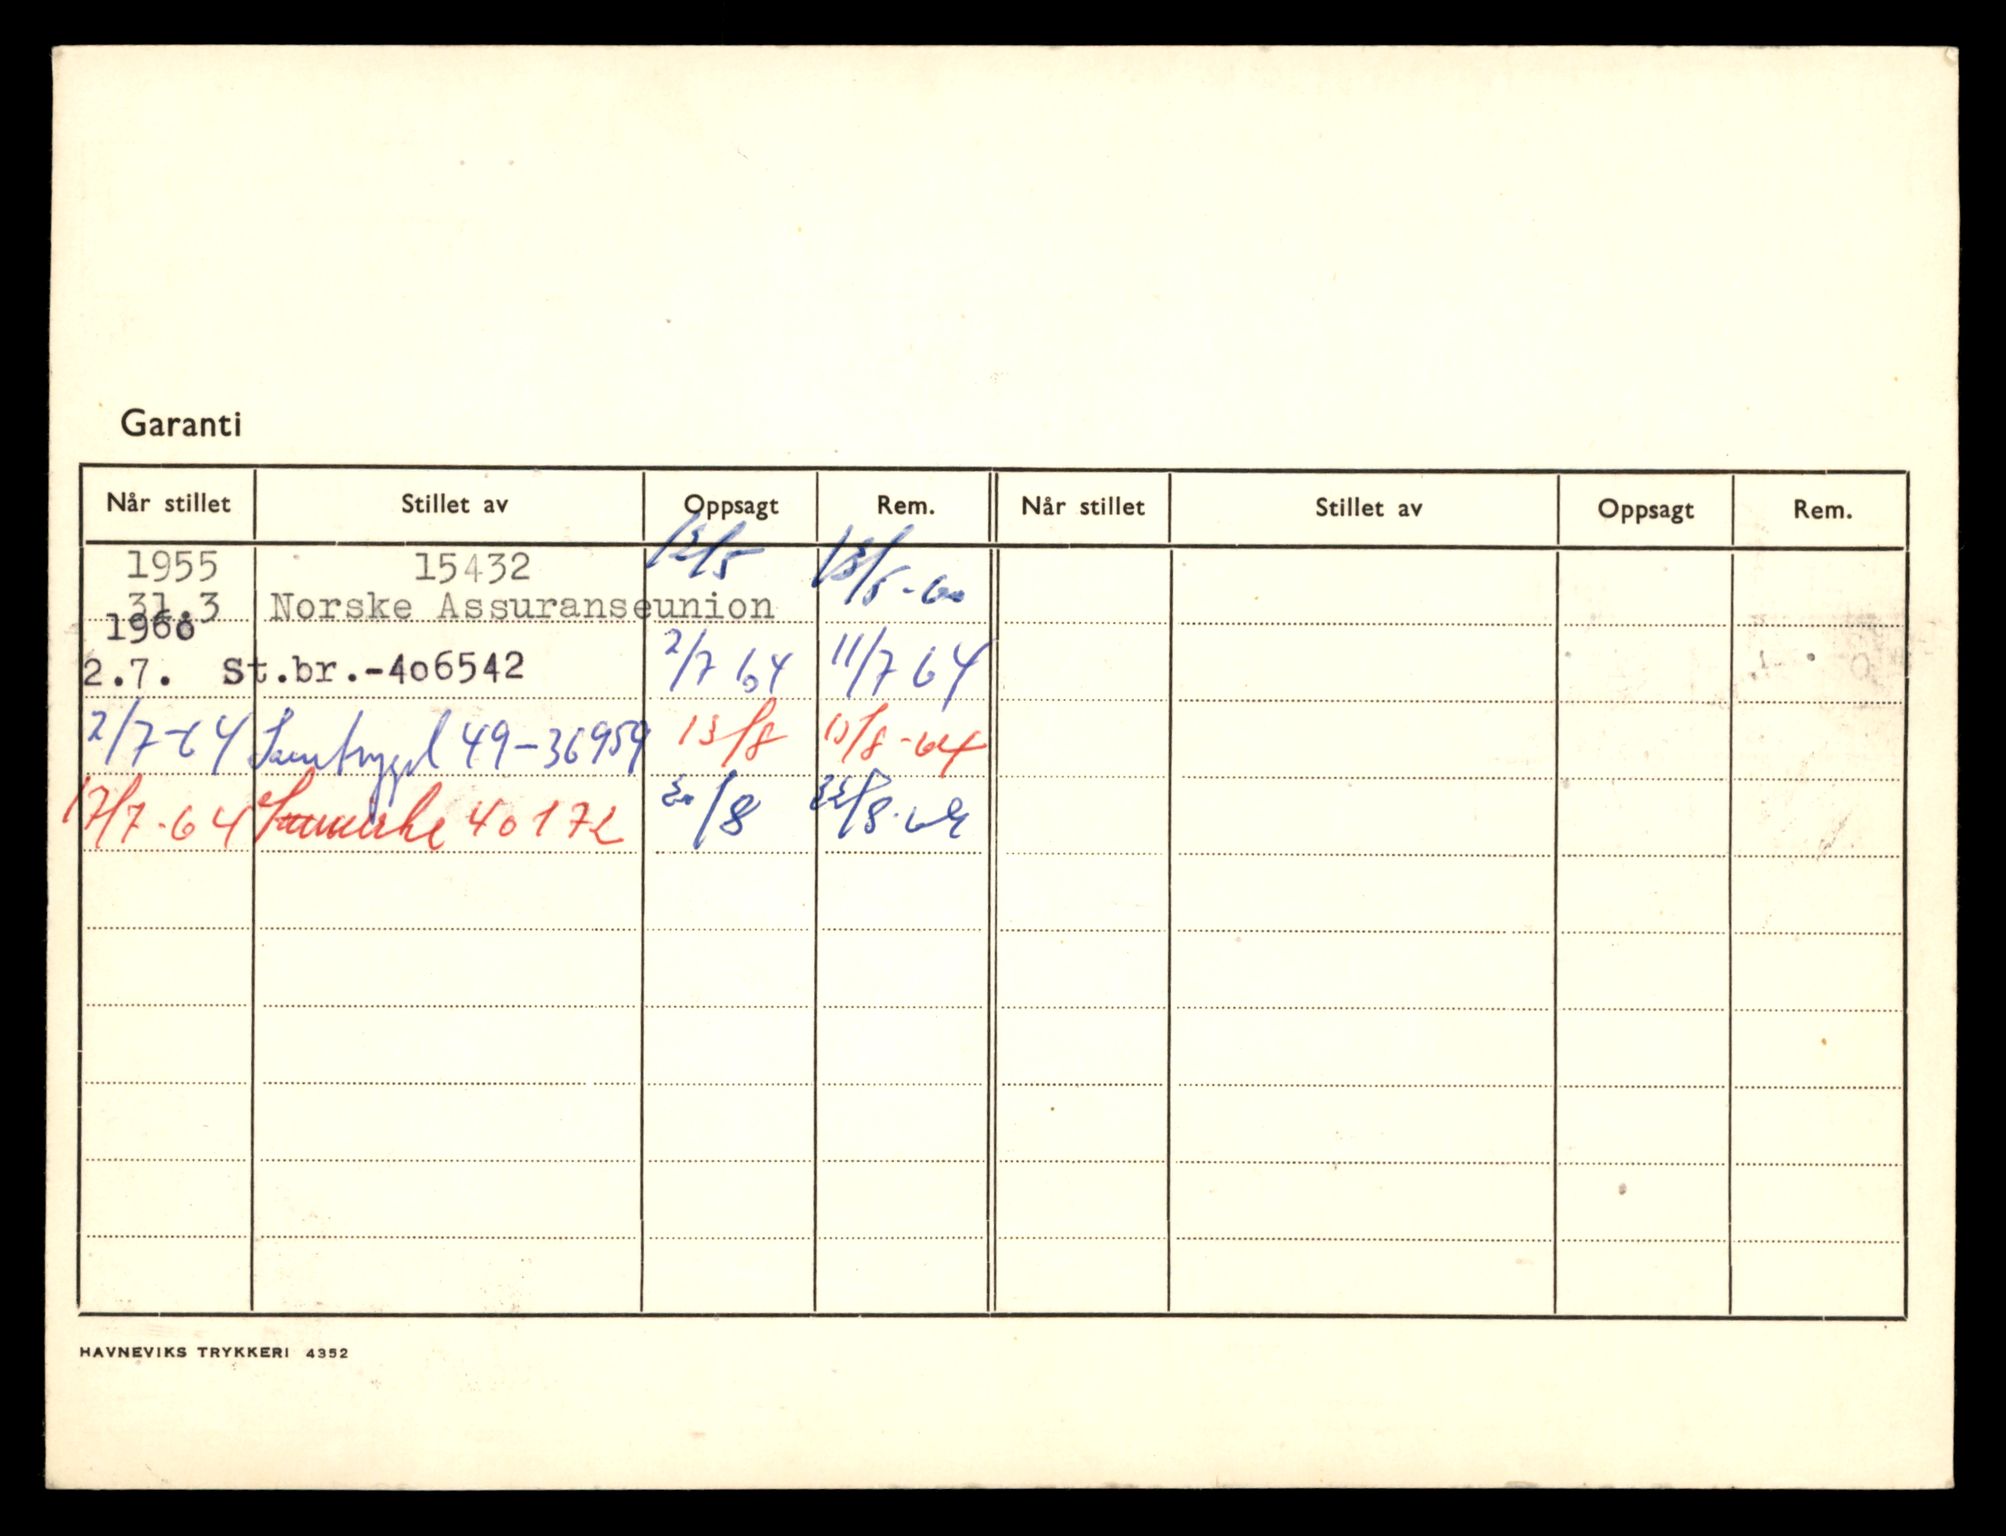 Garanti
Når stillet Stillet av Oppsagt Rem. Når stillet Stillet av Oppsagt Rem.
1955 15432 12/5 13/5-60
31.3 Norske Assuranseunion
1960
2.7. St.br.-406542 2/7 64 11/7 64
2/7-64 Samtrygd 49-36959 13/8 13/8-64
17/7-64 40172 20/8 22/8-64
HAVNEVIKS TRYKKERI 4352